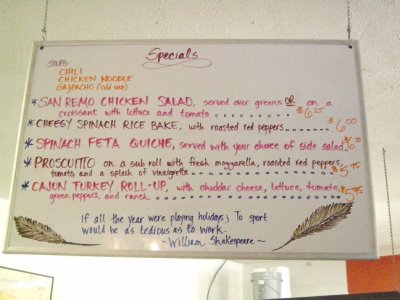 Specials
SOUPS:
CHILI
CHICKEN NOODLE
GAZPACHO (cold soup)
*SAN REMO CHICKEN SALAD, served over greens OR on a
croissant with lettuce and tomato . . . . . . . . . . . . $6.25
*CHEESY SPINACH RICE BAKE, with roasted red peppers . . . . . . . . $6.00
*SPINACH FETA QUICHE, served with your choice of side salad
*PROSCUITTO on a sub roll with fresh mozzarella, roasted red peppers,
tomato and a splash of vinaigrette . . . . . . . . . . . . $5.75
*CAJUN TURKEY ROLL-UP, with cheddar cheese, lettuce, tomato,
green peppers, and ranch . . . . . . . . . . . . $5.95
If all the year were playing holidays; To sport
would be as tedious as to work.
~William Shakespeare~